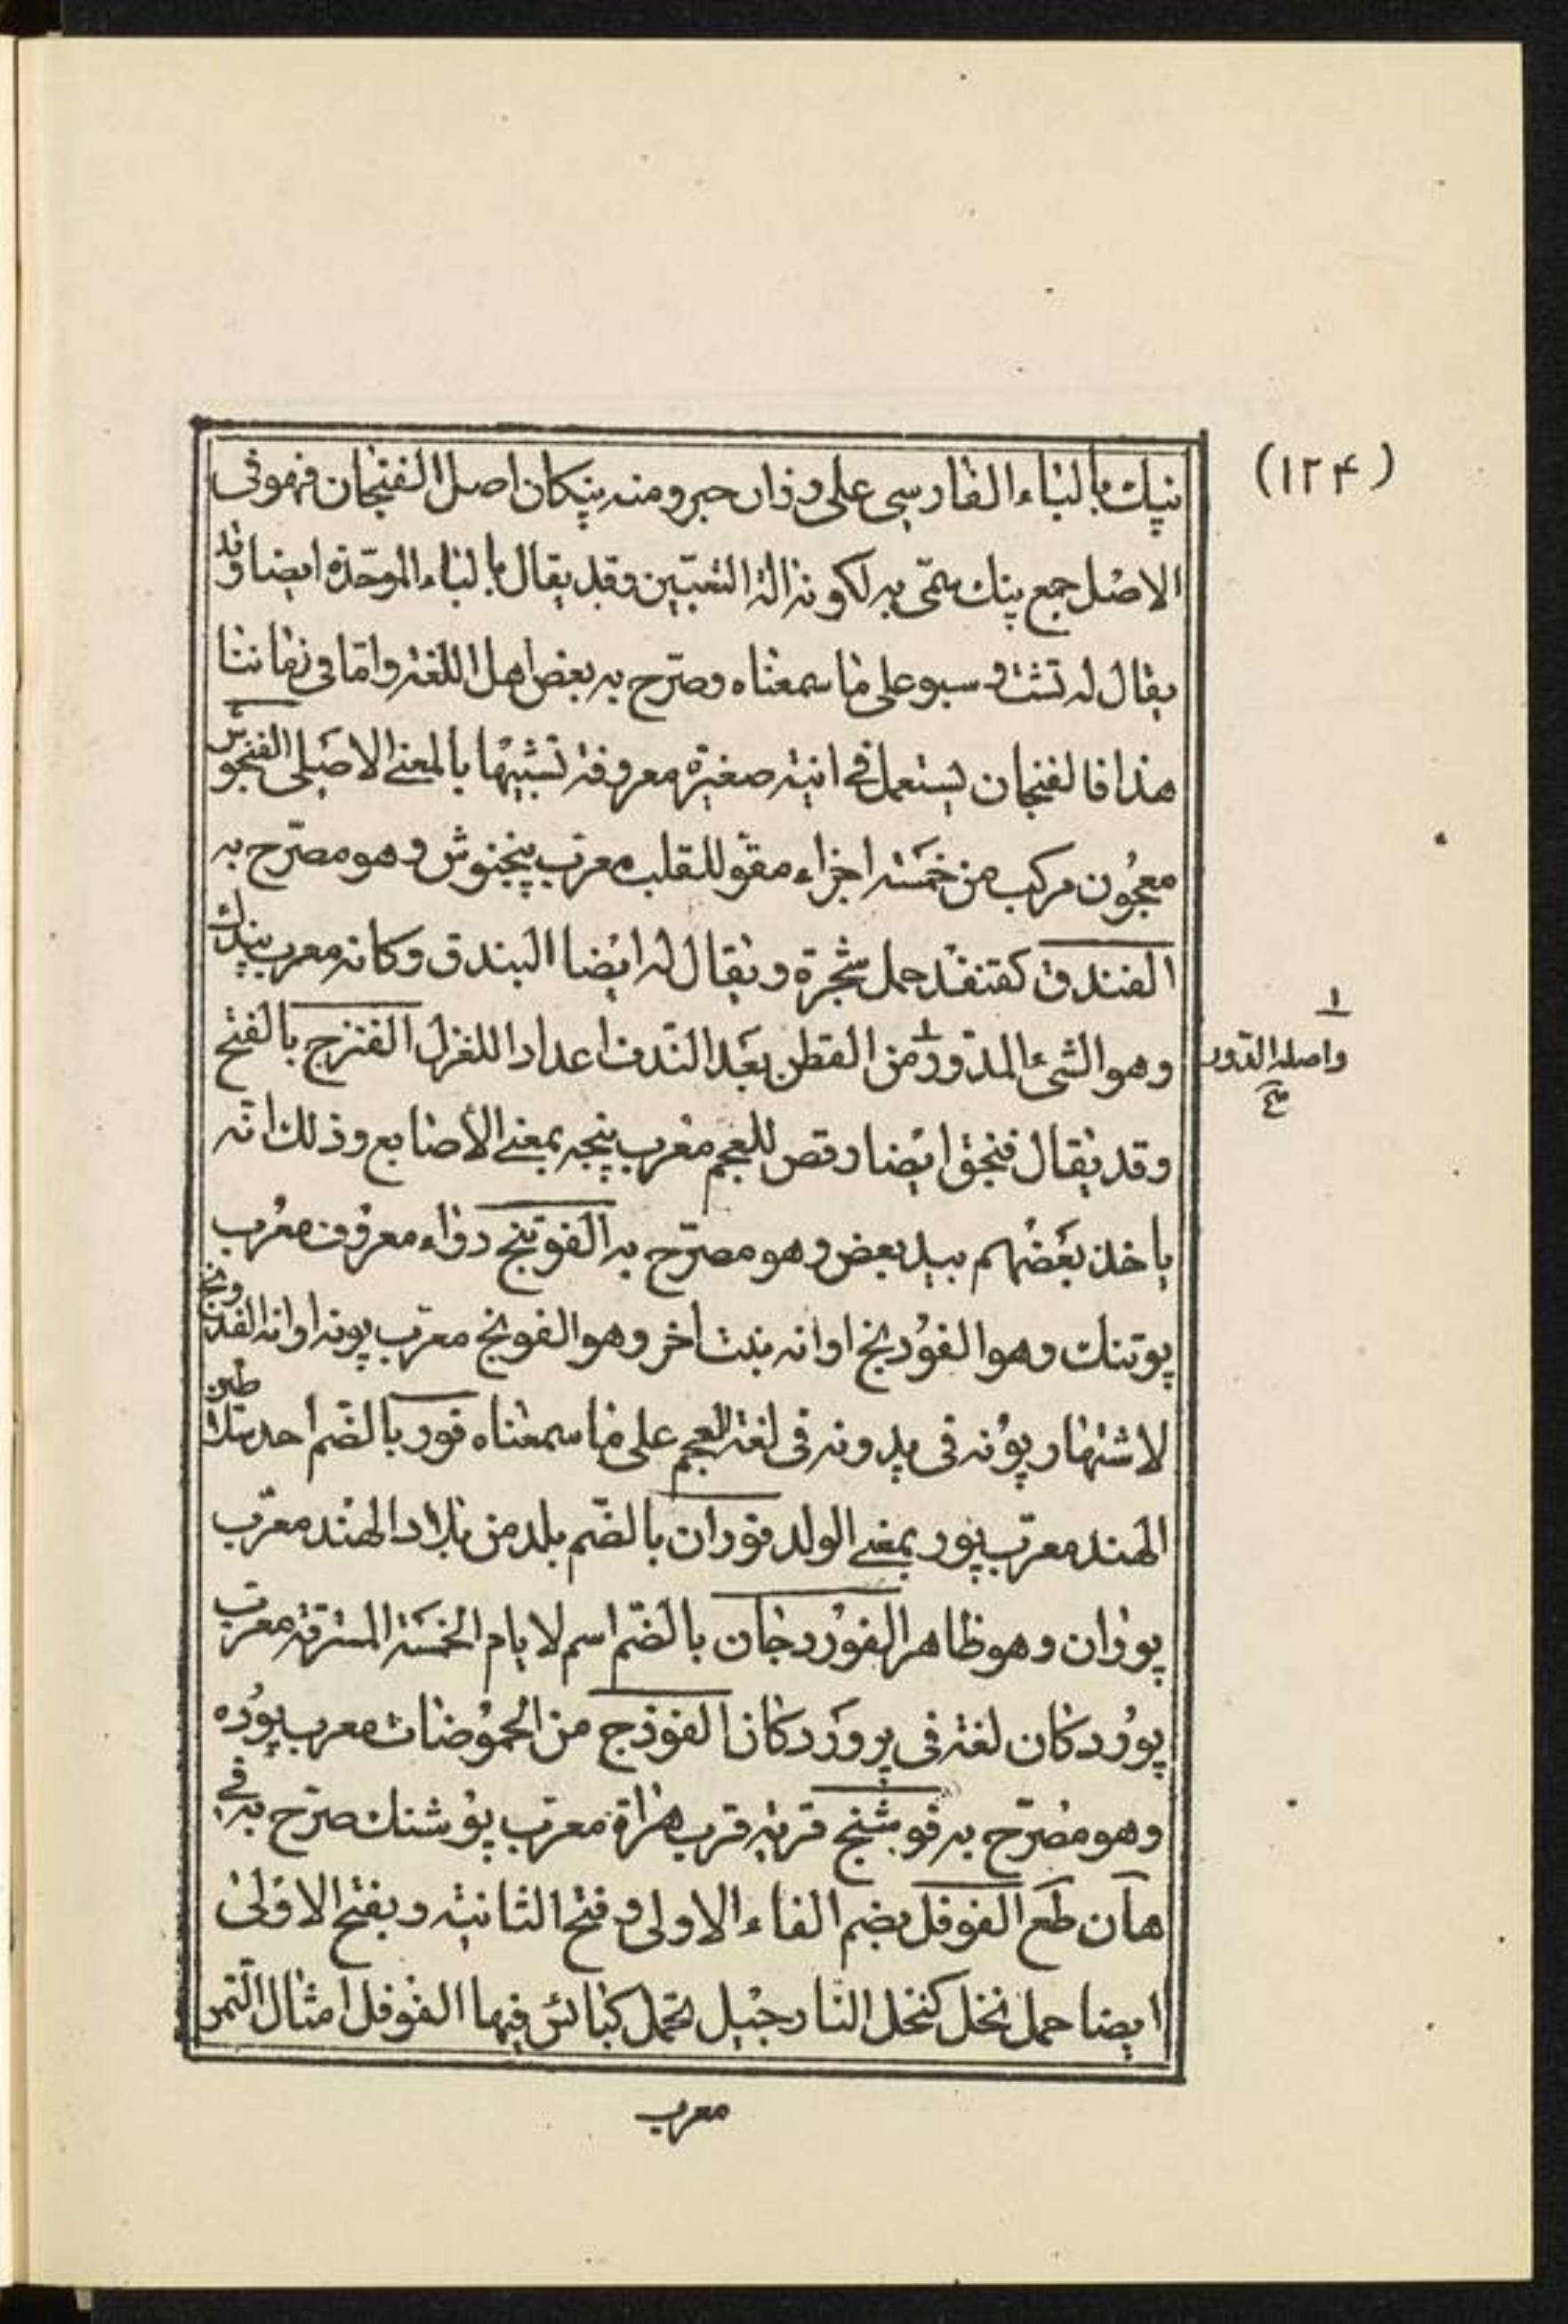 (١٢۴)
نپك بالباء الفارسى على وزان حبر ومنه پنكان اصل الفنجان فهو فى
الاصل جمع پنك سمّى به لكونه الة التعيين وقد يقال بالباء الموحّدة ايضا وقد
يقال له تشت و سبو على ما سمعناه وصرّح به بعض اهل اللغة وامّا فى زماننا
هذا فالفنجان يستعمل فى انية صغيرة معروفة تشبيها بالمعنى الاصلى الفنجوش
معجون مركب من خمسة اجزاء مقو للقلب معرّب پنجنوش وهو مصرّح به
الفندق كقنفذ حمل شجرة ويقال له ايضا البندق وكانه معرب پندك
وهو الشئ المدوّر من القطن بعد الندف اعدادا للغزل الفنزج بالفتح
وقد يقال فنجق ايضا رقص للعجم معرب پنجه بمعنى الأصابع وذلك انّه
ياخذ بعضهم بيد بعض وهو مصرّح به الفوتنج دواء معروف معرب
پوتنك وهو الفودنج او انه نبت اخر وهو الفونج معرّب پونه او انه الفدونج
لاشتهار پونه فى پدونه فى لغة العجم على ما سمعناه فور بالضّم احد سلاطين
الهند معرّب پور بمعنى الولد فوران بالضّم بلد من بلاد الهند معرّب
پوران وهو ظاهر الفوردجان بالضّم اسم لايام الخمسة المسترقة معرّب
پوردكان لغة فى پروردكان الفوذج من الحموضات معرب پوده
وهو مصرّح به فوشنج قرية قرب هراة معرّب پوشنك صرّح به فى
هآن طَع الفوفل بضم الفاء الاولى وفتح الثانية وبفتح الاولى
ايضا حمل نخل كنخل النارجيل تحمل كبائس فيها الفوفل امثال التمر
معرب
١
واصله الدّور